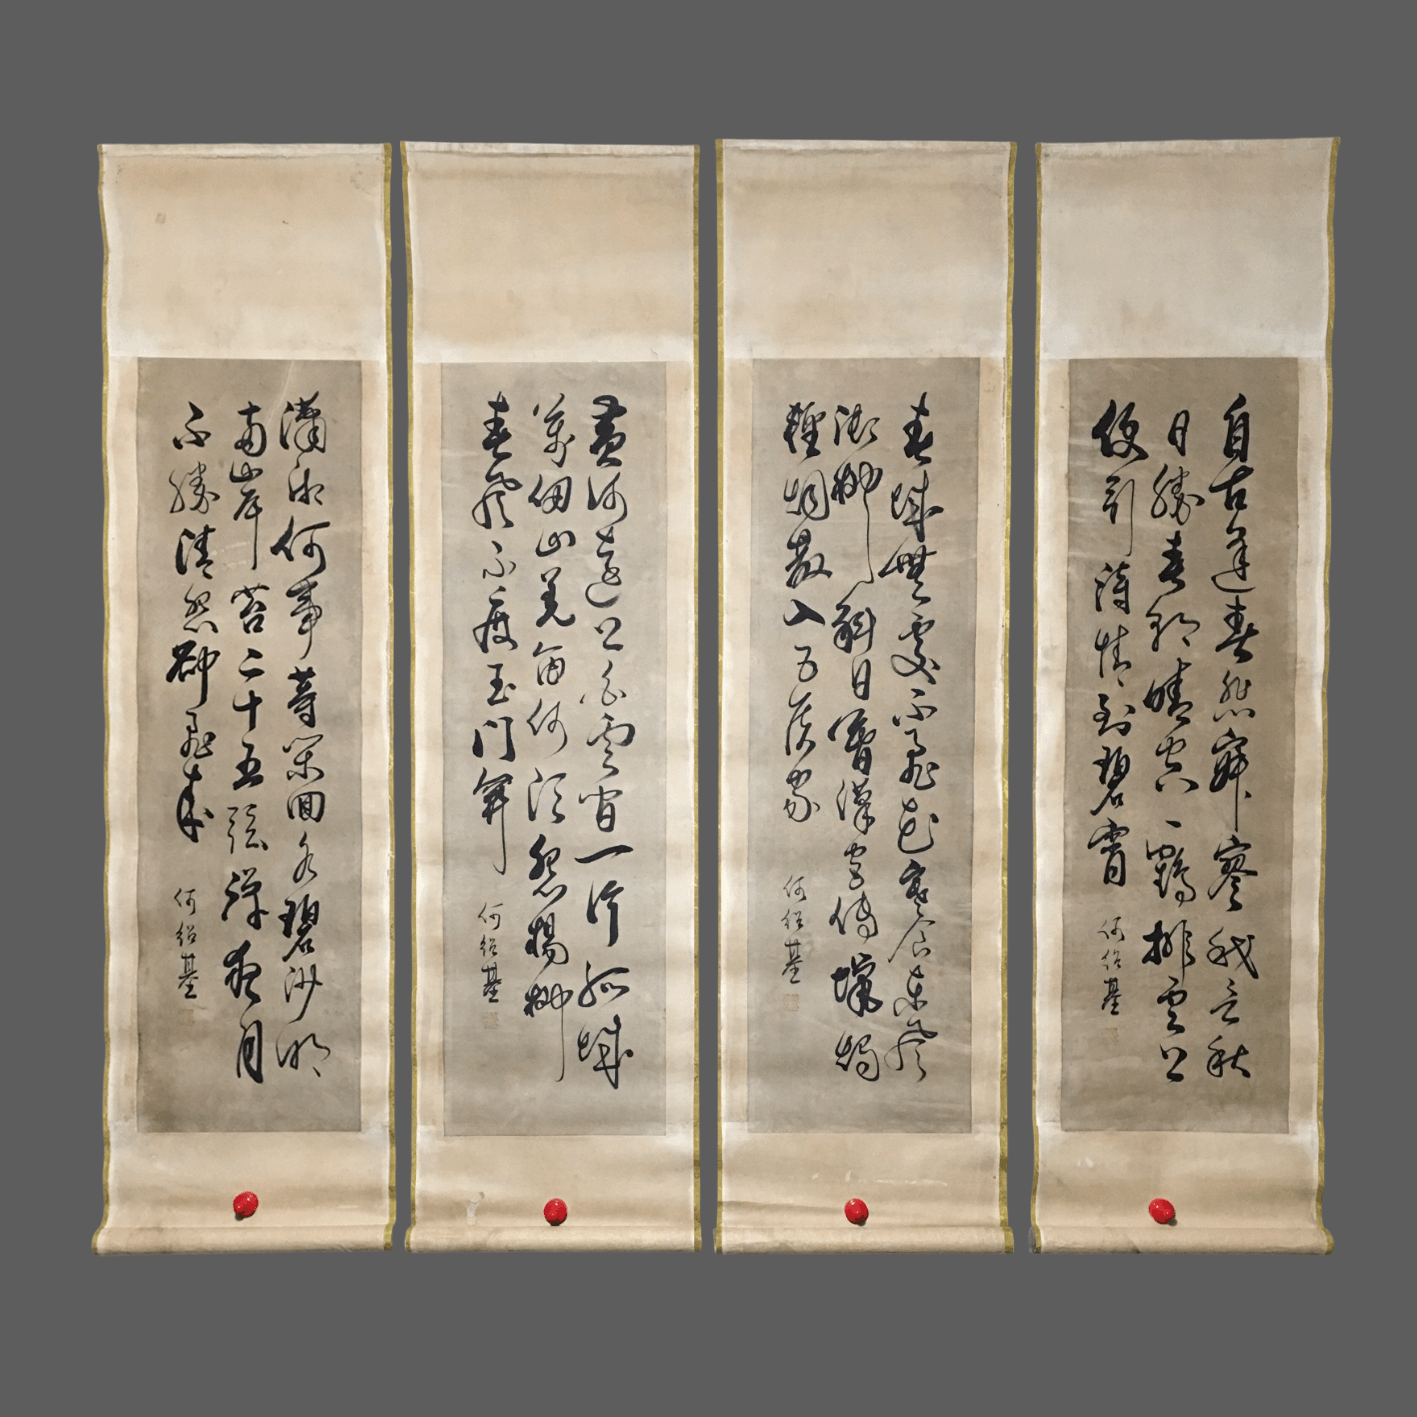 自古逢春悲寂寥我言秋
日勝春朝晴空一鶴排雲上
便引詩情到碧霄
何紹基
春城無處不飛花寒食東風
御柳斜日暮漢宮傳蠟燭
輕烟散入五侯家
何紹基
黃河遠上白雲間一片孤城
萬仞山羌笛何須怨楊柳
春風不度玉門關
何紹基
瀟湘何事等閑回水碧沙明
兩岸苔二十五弦彈夜月
不勝清怨卻飛來
何紹基